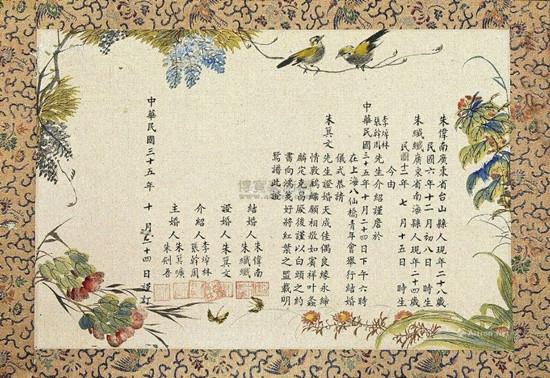 朱偉南廣東省台山縣人現年二十八歲
民國六年十二月初八日 時生
朱纖纖廣東省南海縣人現年二十四歲
民國十二年 七月十五日 時生
今由
李焯林
張幹周先生介紹謹居於
中華民國三十五年十月二十四日下午六時
在上海八仙橋青年會舉行結婚
儀式恭請
朱莫文先生證婚天成佳偶良緣永締
情敦鶼鰈願相敬如賓祥叶螽
麟定克昌厥後謹以白頭之約
書向鴻箋好將紅葉之盟載明
鴛譜此證
結婚人 朱偉南
朱纖纖
證婚人 朱莫文
介紹人 李焯林
張幹周
主婚人
中華民國三十五年 十月二十四日謹訂